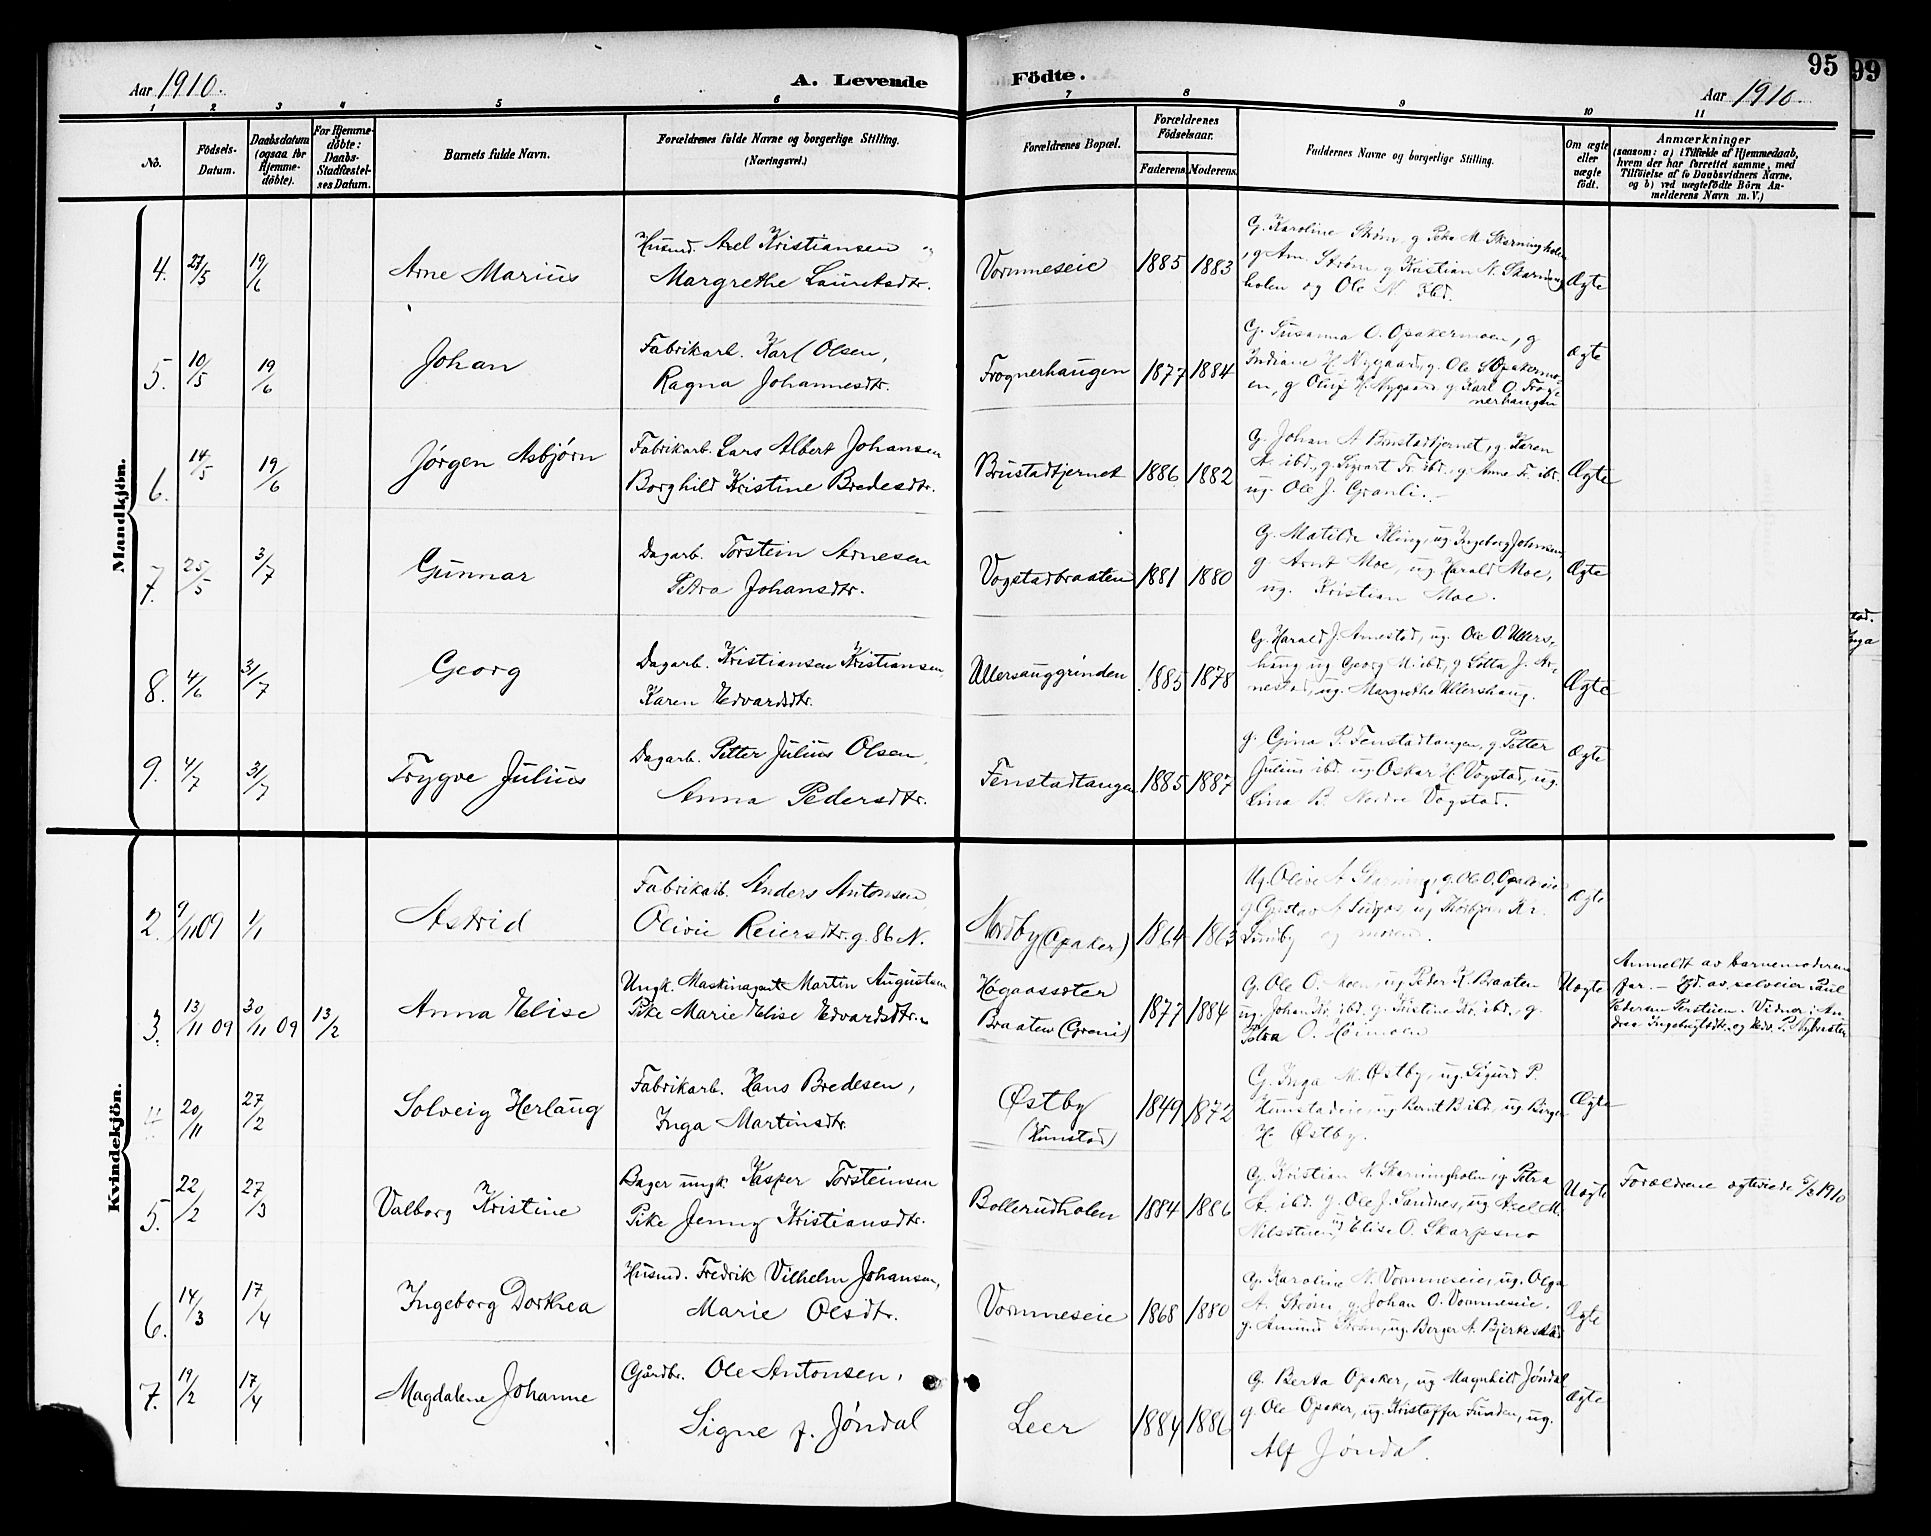 95
99
Aar 1910.
A. Levende Födte.
Aar 1910.
1 2 3 4 5 6 7 8 9 10 11
No.
Födsels-
Datum.
Daabsdatum
(ogsaa for
Hjemme-
döbte).
For Hjemme-
döbte:
Daabs-
Stadfæstel-
ses Datum.
Barnets fulde Navn.
Forældrenes fulde Navne og borgerlige Stilling.
(Næringsvei.)
Forældrenes Bopæl.
Forældrenes
Födselsaar.
Faderens. Moderens.
Faddernes Navne og borgerlige Stilling.
Om ægte
eller
uægte
födt.
Anmærkninger
(saasom: a) i Tilfælde af Hjemmedaab,
hvem der har forrettet samme, med
Tilföielse af to Daabsvidners Navne.
og b) ved uægtefödte Börn An-
melderens Navn m. V.)
Mandkjön.
4. 27/5 19/6 Arne Marius
Husmd. Axel Kristiansen og
Margrethe Lauritsdtr.
Vormneseie 1885 1883
G. Karoline Strøm, g
g Am. Strøm g Kristian N. Skarning
holen og Ole N. Ibd.
Ægte
5. 10/5 19/6 Johan
Fabrikarb. Karl Olsen,
Ragna Johannesdtr.
Frognerhaugen 1877 1884
G. Susanna O. Opakermoen, g
Indiane H. Nygaard, g. Ole S Opakermo-
en, g Oluf H. Nygaard g Karl O. Frog-
nerhaugen
ægte
6. 14/5 19/6 Jørgen Asbjørn
Fabrikarb. Lars Albert Johansen
Borghild Kristine Bredesdtr.
Brustadtjernet 1886 1882
G. Johan A Brustadtjernet, g. Karen
A. ibd., g. Sigvart Fr. ibd., g Anne Fr. ibd.
ug. Ole J. Granli.
Ægte
7. 25/5 3/7 Gunnar
Dagarb. Torstein Arnesen
Petra Johansdtr.
Vogstadbraaten 1881 1880
G. Matilde Kling, ug Ingeborg Johnsen
g Arnt Moe, ug Harald Moe,
ug. Kristian Moe.
Ægte
8. 4/6 31/7 Georg
Dagarb. Kristiansen Kristiansen,
Karen Edvardsdtr.
Ullershauggrinden 1885 1878
G. Harald J. Arnestad, ug. Ole O. Ullers-
haug ug Georg M. ibd., g Lotta J. Ar-
nestad, ug. Margrethe Ullershaug.
Ægte
9. 4/7 31/7 Trygve Julius
Dagarb. Petter Julius Olsen,
Anna Pedersdtr.
Fenstadtangen 1885 1887
g. Gina P. Fenstadtangen, g Petter
Julius ibd. ug Oskar H. Vogstad, ug.
Lina B. Nordre Vogstad.
Ægte
Kvindekjön.
2. 9/11 09 1/1 Astrid
Fabrikarb. Anders Antonsen
Olivie Reiersdtr. g. 86 N.
Nordby (Opaker) 1864 1863
Ug. Olive A. Skarning, g. Ole O. Opakereie
g Gustav A.
Sundby og moren.
Ægte
3. 13/11 09 30/11 09 13/2 Anna Elise
Ungk. Maskinagent Martin Augustsen
Pike Marie Elise Edvardsdtr.
Høgaasseter
Braaten (Groni) 1877 1884
G. Ole O. Moen, ug Peder K. Braaten
ug. Johan Kr. ibd. g. Kristine Kr. ibd., g.
Petra O. Hoimoen
Uægte
Anmeldt av barnemoderens
far. – Hjd. av selveier Paul
Pedersen Torstien. Vidner: An-
drea
4 20/11 27/2 Solveig Herlaug
Fabrikarb. Hans Bredesen,
Inga Martinsdtr.
Østby
(Kunstad) 1849 1872
G. Inga M. Østby, ug. Sigurd P.
Kunstadeie, ug Bernt B. ibd., ug. Birger
H. Østby.
Ægte
5. 22/2 27/3 Valborg Kristine
Bager ungk. Kasper Torsteinsen
Pike Jenny Kristiansdtr.
Bollerudholen 1884 1886
G. Kristian A. Skarningholen, g Petra
A. ibd. g. Ole J. Sandnes, ug Axel M.
Nilsstuen, ug Elise O. Skarpsno
Uægte
Forældrene ægteviede 5/3 1910
6. 14/3 17/4 Ingeborg Dorthea
Husmd. Fredrik Vilhelm Johansen,
Marie Olsdtr.
Vormneseie 1868 1880
G. Karoline N. Vormneseie, ug. Olga
A. Strøm, g. Johan O. Vormneseie,
g. Amund Strøm, ug. Borger A. Bjerkeseth
Ægte
7. 19/2 17/4 Magdalene Johanne
Gårdbr. Ole Antonsen,
Signe f. Jøndal
Leer 1884 1886
G. Berta Opaker, ug Magnhild Jøndal
g. Ole Opaker, ug. Kristoffer Funden, ug.
Alf Jøndal.
Ægte